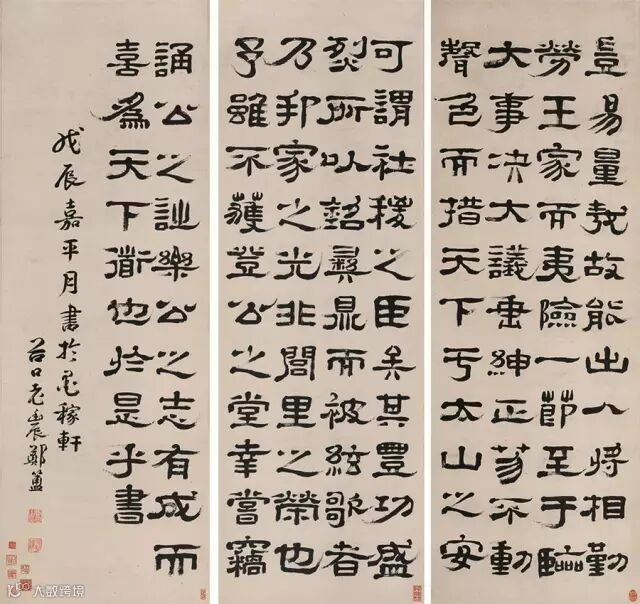 豈易量哉故能出入將相勤
勞王家而夷險一節至于臨
大事決大議垂紳正笏不動
聲色而措天下亏太山之安
可謂社稷之臣矣其豐功盛
烈所以銘彝鼎而被絃歌者
乃邦家之光非閭里之榮也
予雖不獲登公之堂幸嘗竊
誦公之詩樂公之志有成而
喜為天下衟也於是乎書
戊辰嘉平月書於稼軒
谷口老農鄭簠
大数跨境